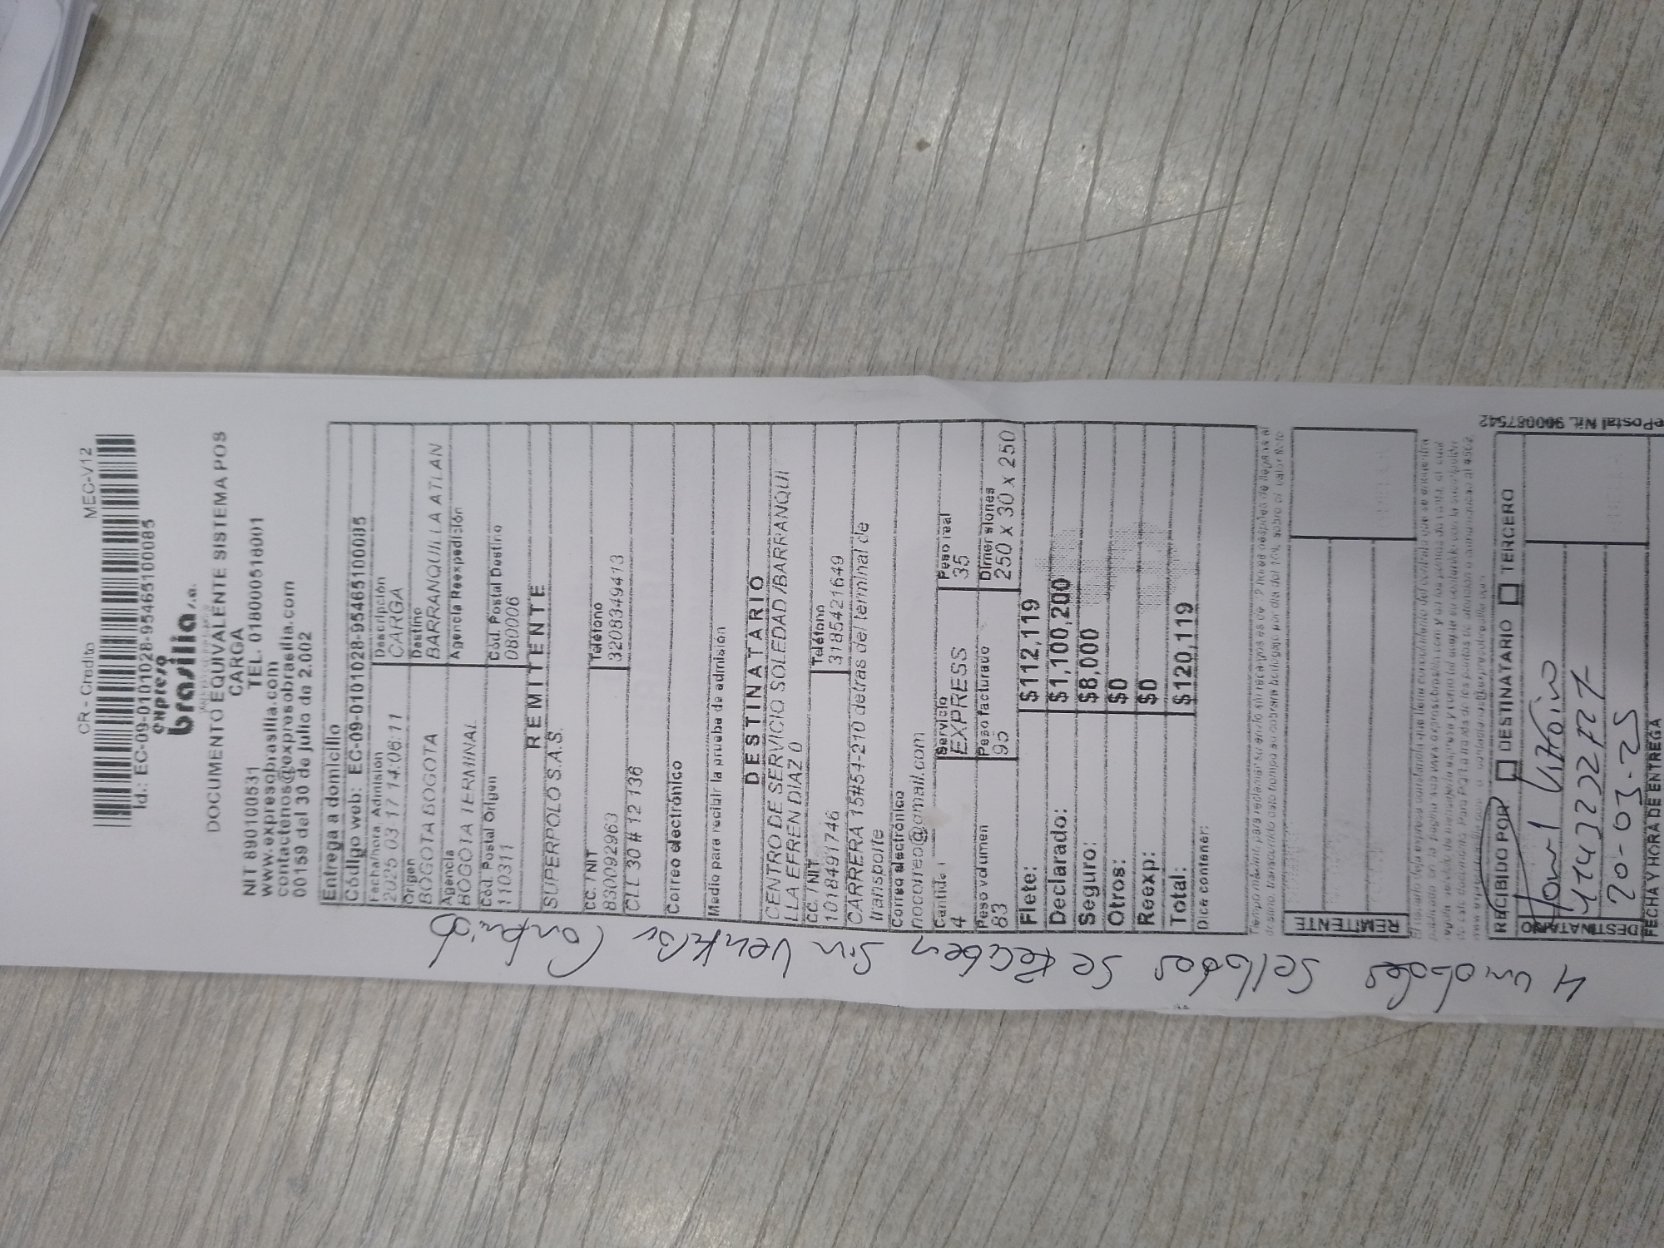 CR - Credito MEC-V12
Id.: EC-09-0101028-9546510085
expreso
brasilia s.a.
DOCUMENTO EQUIVALENTE SISTEMA POS
CARGA
NIT 890100531 TEL. 018000518001
www.expresobrasilia.com
contactenos@expresobrasilia.com
00159 del 30 de julio de 2.002
Entrega a domicilio
Código web: EC-09-0101028-9546510085
Fecha/hora Admisión Descripción
2025 03 17 14:06:11 CARGA
Origen Destino
BOGOTA BOGOTA BARRANQUILLA ATLAN
Agencia Agencia Reexpedición
BOGOTA TERMINAL
Cód. Postal Origen Cód. Postal Destino
110311 080006
REMITENTE
SUPERPOLO S.A.S.
CC. / NIT Teléfono
830092963 3208349413
CLL 30 # 12 136
Correo electrónico
Medio para recibir la prueba de admisión
DESTINATARIO
CENTRO DE SERVICIO SOLEDAD/BARRANQUI
LLA EFREN DIAZ 0
CC. / NIT Teléfono
1018491746 3185421649
CARRERA 15#54-210 detras del terminal de
transporte
Correo electrónico
nocorreo@gmail.com
Cantidad Servicio Peso real
4 EXPRESS 35
Peso volumen Peso facturado Dimensiones
83 95 250 x 30 x 250
Flete: $112,119
Declarado: $1,100,200
Seguro: $8,000
Otros: $0
Reexp: $0
Total: $120,119
Dice contener:
REMITENTE
RECIBIDO POR DESTINATARIO TERCERO
DESTINATARIO
20-03-25
FECHA Y HORA DE ENTREGA
ePostal Nit. 900087542
4 unidades selladas se reciben sin verificar contenido